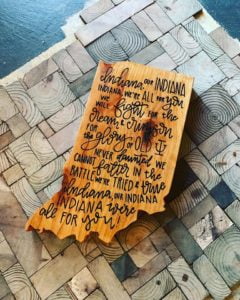 Indiana, OUR INDIANA
INDIANA, WE'RE ALL FOR YOU
WE WILL fight FOR THE
Cream & Crimson
FOR the glory OF OLD IU
NEVER daunted, WE
CANNOT falter IN THE
BATTLE WE'RE TRIED & true
Indiana, OUR INDIANA
INDIANA WE'RE
all FOR YOU!